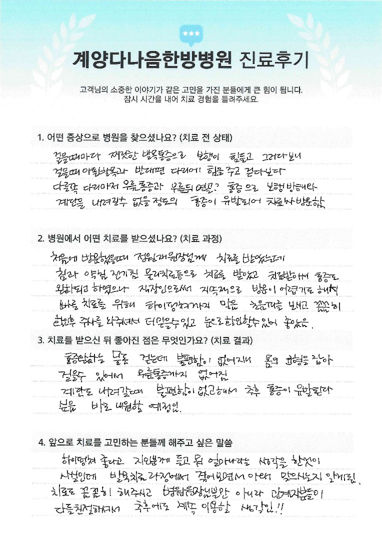 계양다나음한방병원 진료후기
고객님의 소중한 이야기가 같은 고민을 가진 분들에게 큰 힘이 됩니다.
잠시 시간을 내어 치료 경험을 들려주세요.
1. 어떤 증상으로 병원을 찾으셨나요? (치료 전 상태)
걸을때마다 발목통증으로 보행이 힘들고 그러다보니
걸을때 아픈발목과 반대편 다리에 힘을 주고 걷다보니
다른쪽 다리마저 무릎통증과 통증으로 보행 방해와
계단을 내려갈수 없을 정도의 통증이 유발되어 치료차 방문함
2. 병원에서 어떤 치료를 받으셨나요? (치료 과정)
처음에 방문했을때 치료 받았는데
침과 약침 전기침 물리치료등으로 치료를 받았고 치료받아서 통증도
완화되고 하였으나 직장인으로서 지속적으로 방문이 어렵기도 해서
빠른 치료를 위해 초음파를 보시고 꼼꼼히
한번후 주사를 놔주셔서 더 믿을수있고 눈으로 확인할수있어 좋았음.
3. 치료를 받으신 뒤 좋아진 점은 무엇인가요? (치료 결과)
통증완화는 물론 걷는데 불편함이 없어지니 몸의 균형을 잡아
걸을수 있어서 무릎통증까지 없어짐
계단도 내려갈때 불편함이 없고해서 추후 통증이 유발된다
바로 내원할 예정임.
4. 앞으로 치료를 고민하는 분들께 해주고 싶은 말씀
좋다고 지인분께 듣고 뭐 얼마나 하는 시작을 했던것이
사실인데 발목치료과정에서 좋아지면서 아래 믿으시는지 알게됨.
치료도 꼼꼼히 해주시고 병원원장님뿐만 아니라 관계자분들이
다들친절하셔서 추후에도 계속 이용할 생각임!!